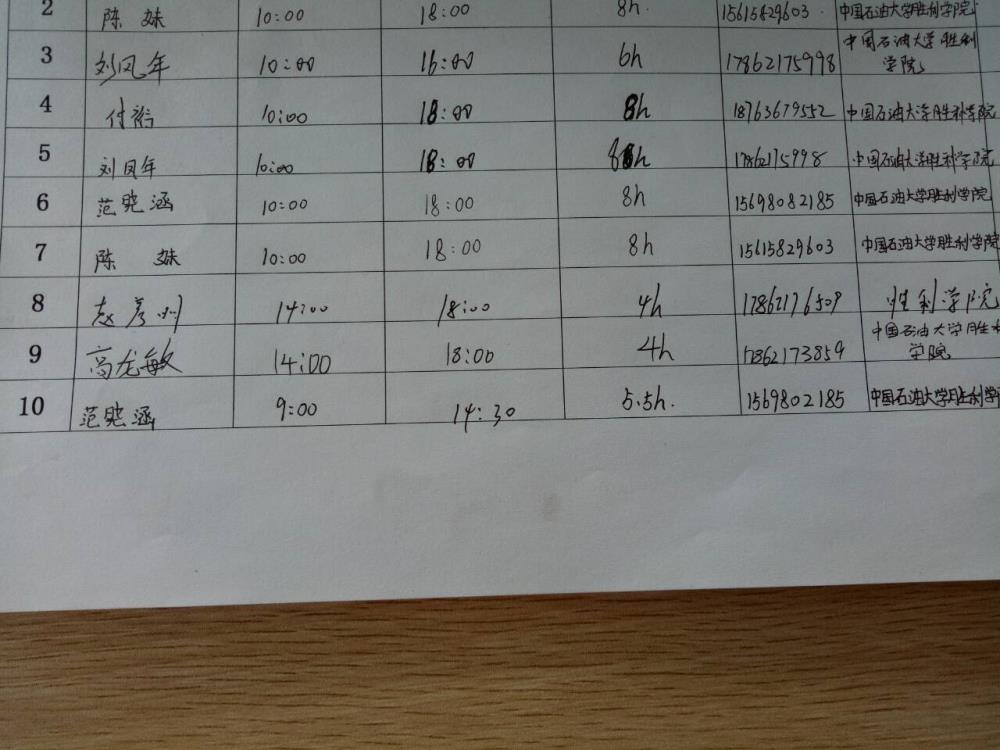 2 陈 妹 10:00 18:00 8h. 15615829603. 中国石油大学胜利学院
3 刘凤年 10:00 16:00 6h 17862175998 中国石油大学胜利
学院
4 付裕 10:00 18:00 8h 18763679552 中国石油大学胜利学院
5 刘凤年 10:00 18:00 8h 17862175998 中国石油大学胜利学院
6 范晓涵 10:00 18:00 8h 15698082185 中国石油大学胜利学院
7 陈 妹 10:00 18:00 8h 15615829603 中国石油大学胜利学院
8 赵彦州 14:00 18:00 4h 17862176509 胜利学院
9 高龙敏 14:00 18:00 4h 17862173859 中国石油大学胜利
学院
10 范晓涵 9:00 14:30 5.5h. 1569802185 中国石油大学胜利学